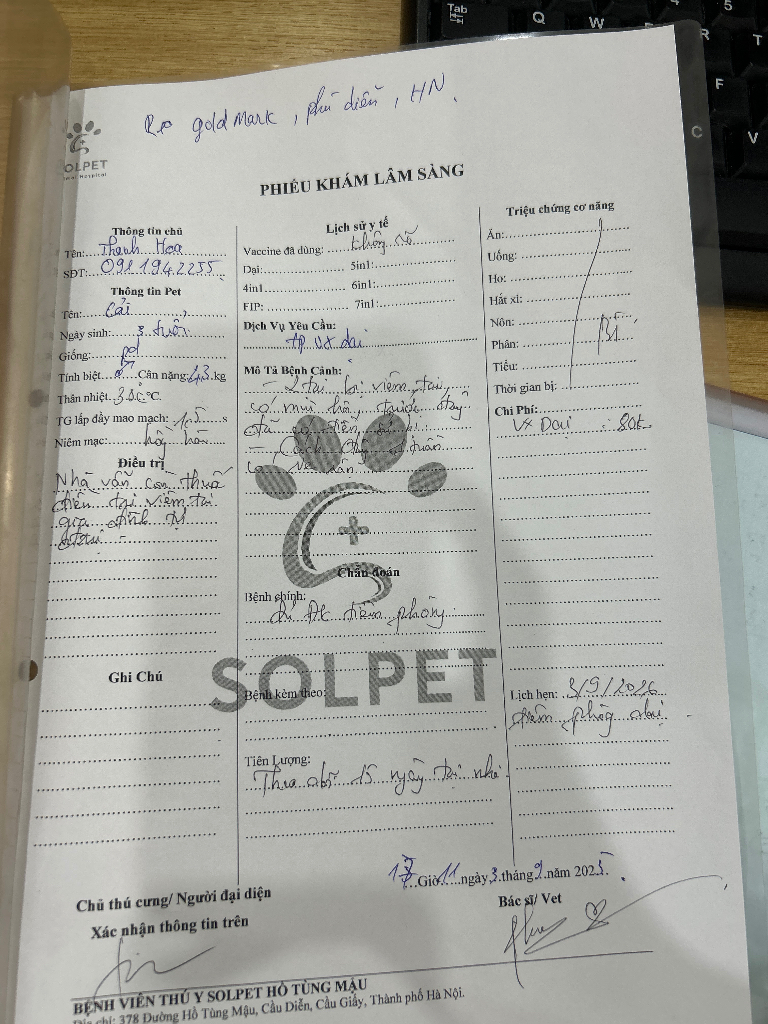 Tab
Q
W
R
T
F
C
V
4
5
goldMark, phú diễn, HN.
OLPET
PHIẾU KHÁM LÂM SÀNG
Thông tin chủ
Tên: Thanh Hoa
SĐT: 0981942255
Thông tin Pet
Tên: Cải
Ngày sinh: 3 tuổi
Giống:
Tính biệt: Cân nặng: 4,3 kg
Thân nhiệt: °C.
TG lấp đầy mao mạch: s
Niêm mạc: hồng hào
Điều trị
Nhà vẫn còn thuốc
điều trị viêm tai
gia đình tự
Ghi Chú
Lịch sử y tế
Vaccine đã dùng: không rõ
Dại: 5in1:
4in1 6in1:
FIP: 7in1:
Dịch Vụ Yêu Cầu:
TP vx dại
Mô Tả Bệnh Cảnh:
- 2 tai bị viêm tai,
có mùi hôi, trước đây
đã có
- Cách đây tuần
Chẩn đoán
Bệnh chính:
đủ ĐK tiêm phòng
SOLPET
Bệnh kèm theo:
Tiên Lượng:
Theo dõi 15 ngày tại nhà
Triệu chứng cơ năng
Ăn:
Uống:
Ho:
Hắt xì:
Nôn:
Phân:
Tiểu:
Thời gian bị:
Chi Phí:
Vx Dại : 80k
Lịch hẹn: 3/9/2026
tiêm phòng dại
Giờ 11 ngày 3 tháng 9 năm 2025.
Chủ thú cưng/ Người đại diện
Xác nhận thông tin trên
Bác sĩ/ Vet
BỆNH VIỆN THÚ Y SOLPET HỒ TÙNG MẬU
Địa chỉ: 378 Đường Hồ Tùng Mậu, Cầu Diễn, Cầu Giấy, Thành phố Hà Nội.